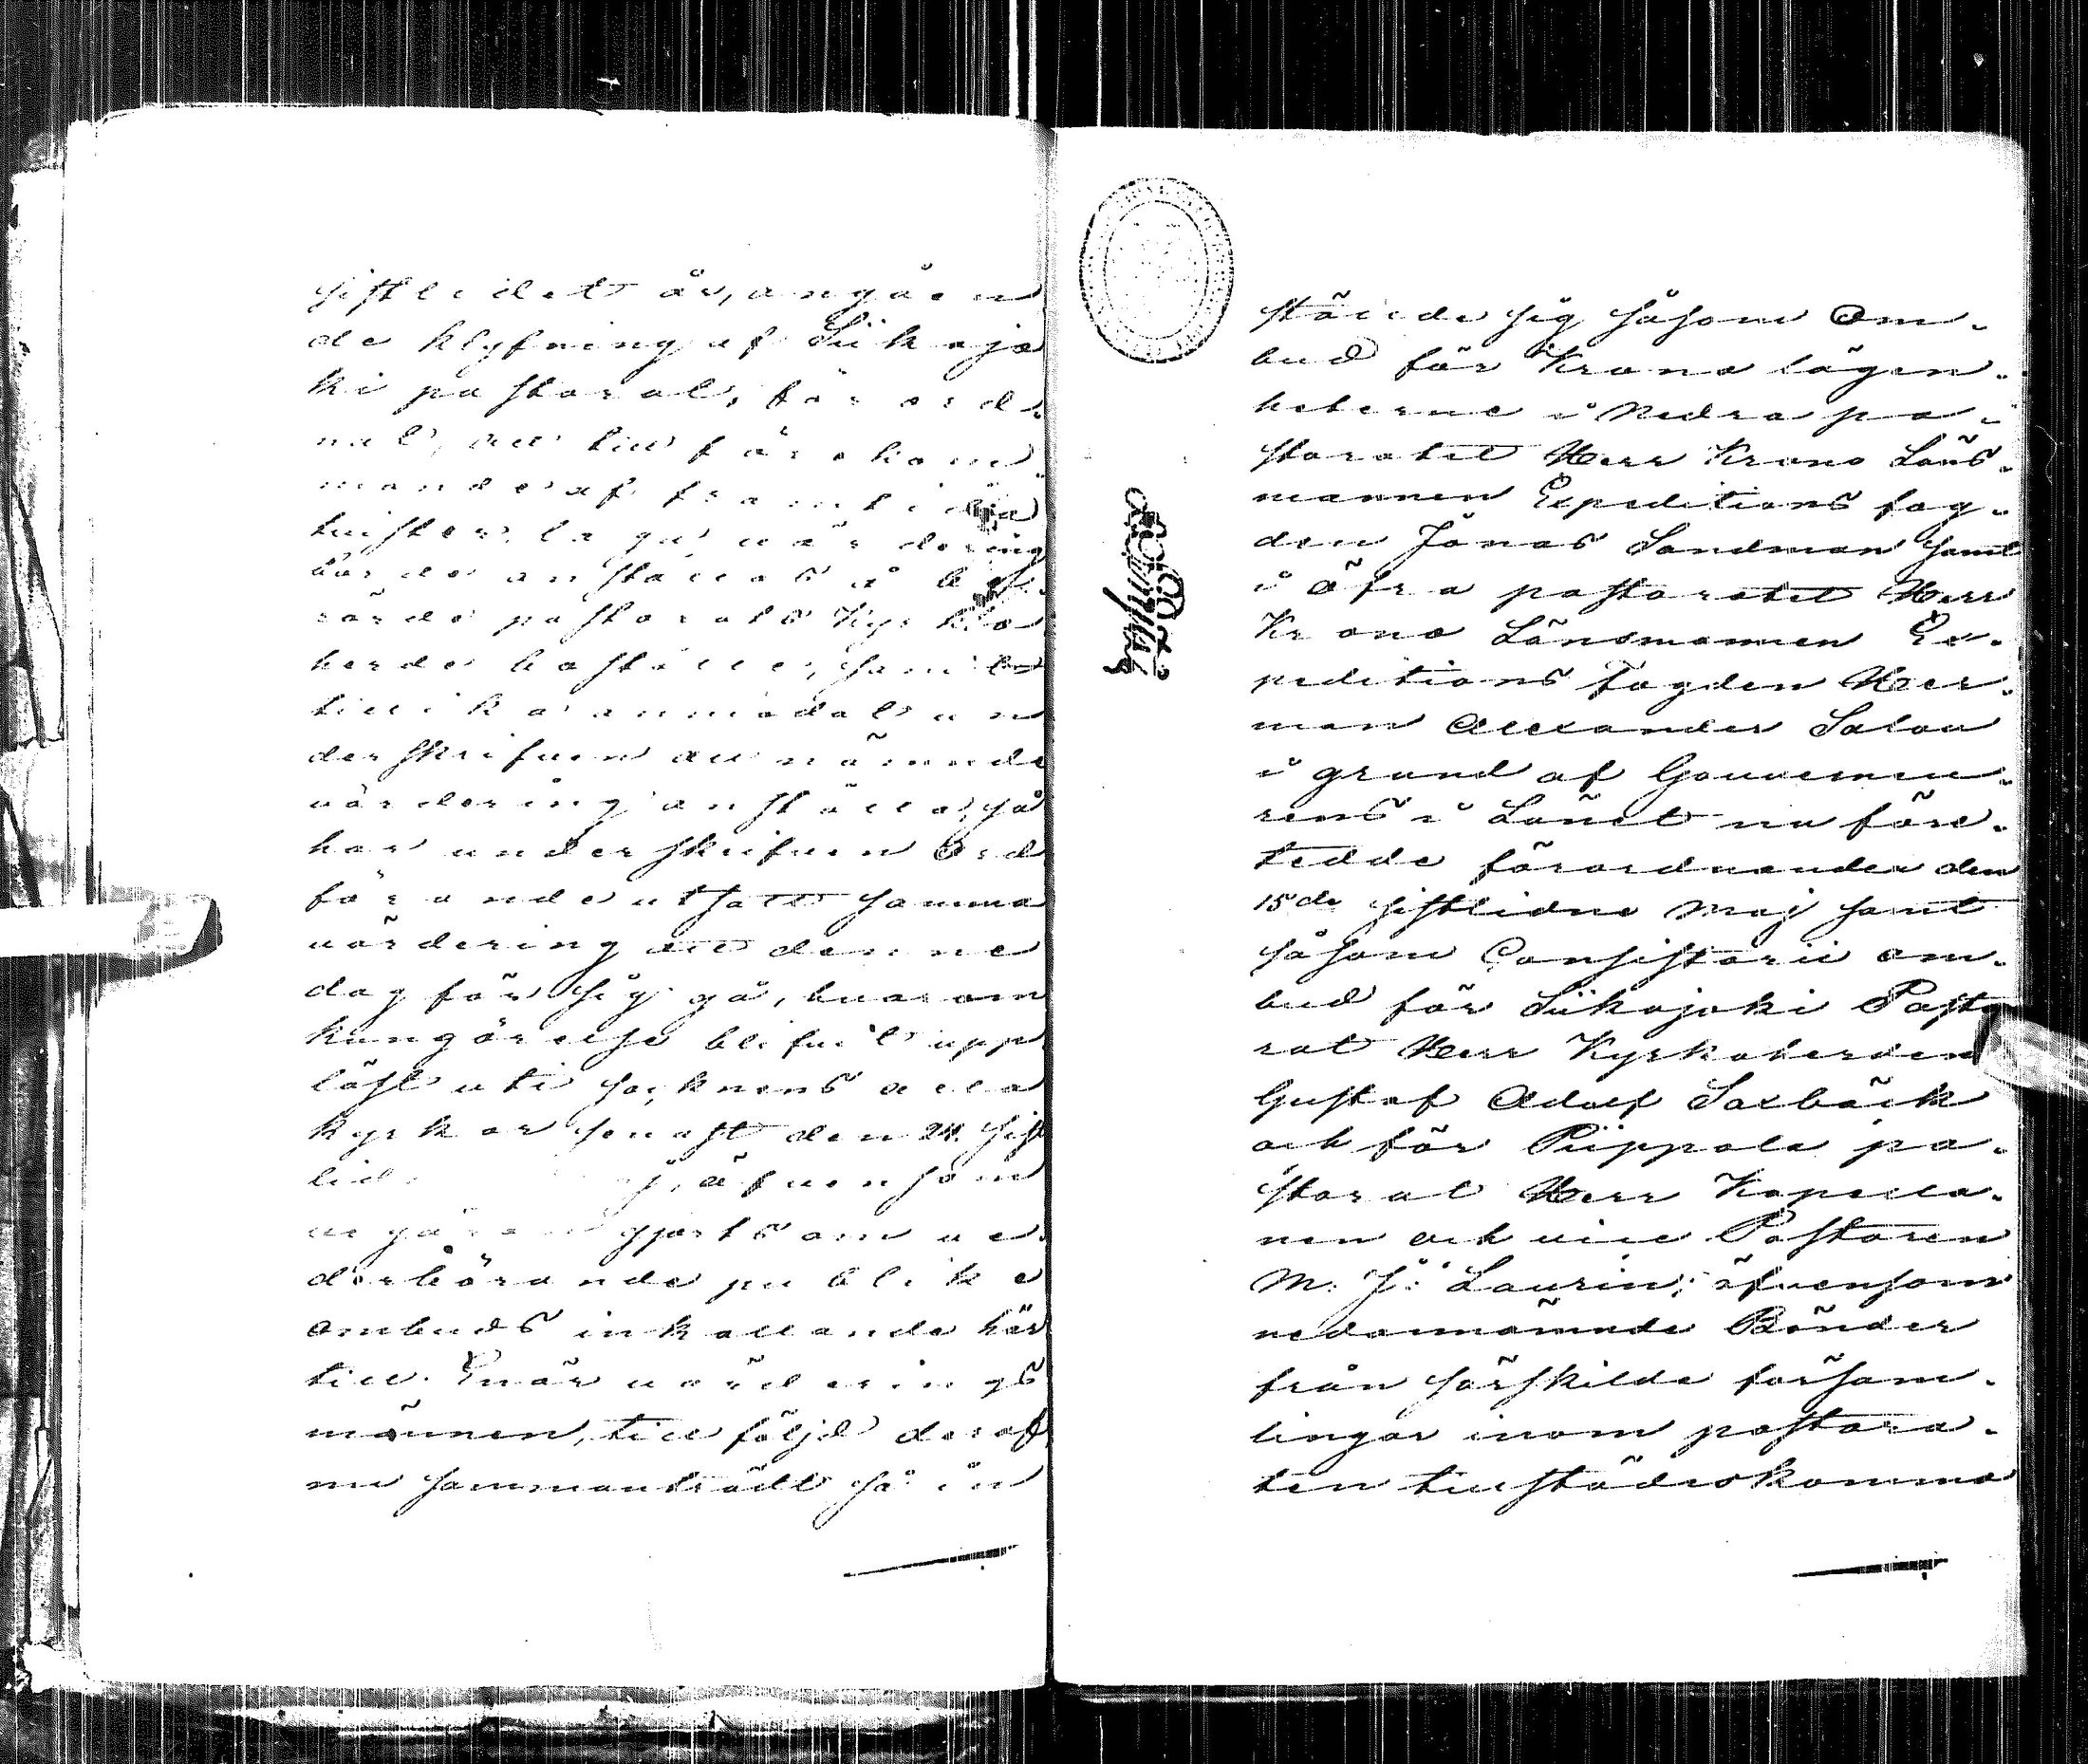 sistlidet år, angåen
de klyfning af Siikajo
ki pastorat, förord-
nat, att till förekom-
mande af framtida
tvister laga värdering
borde anställas å be-
rörde pastorats Kyrko
herde boställe, samt
tillika anmodat un
derskrifven att nämnde
värdering anställa; så
har underskrifven Ord
förande utsatt samma
värdering att denne
dag för sig gå, hvarom
kungörelse blifvit upp
läst uti socknens alla
kyrkor senast den 24. sist
lid. äfvensom
gjorts om ve-
derbörande publike
ombuds inkallande här
till. Enär värderings
männen, till följd deraf
nu sammanträdt så in
ställde sig såsom Om-
bud för Krono lägen-
heterne i Nedra pa-
storatet Herr Krono Läns-
mannen Expeditions fog-
den Jonas Sandman samt
i Öfra pastoratet Herr
Krono Länsmannen Ex-
peditions Fogden Her-
man Alexander Salov
i grund af Gouverneu-
rens i Länet nu före-
tedde förordnanden den
15de sistlidne Maj samt
såsom Consistorii om-
bud för Siikajoki Pasto
rat Herr Kyrkoherden
Gustaf Adolf Saxbäck
och för Piippola pa-
storat Herr Kapella-
nen och vice Pastoren
M. J. Laurin; äfvensom
nedannämnde Bönder
från särskilda försam-
lingar inom pastora-
ten tillstädeskomma